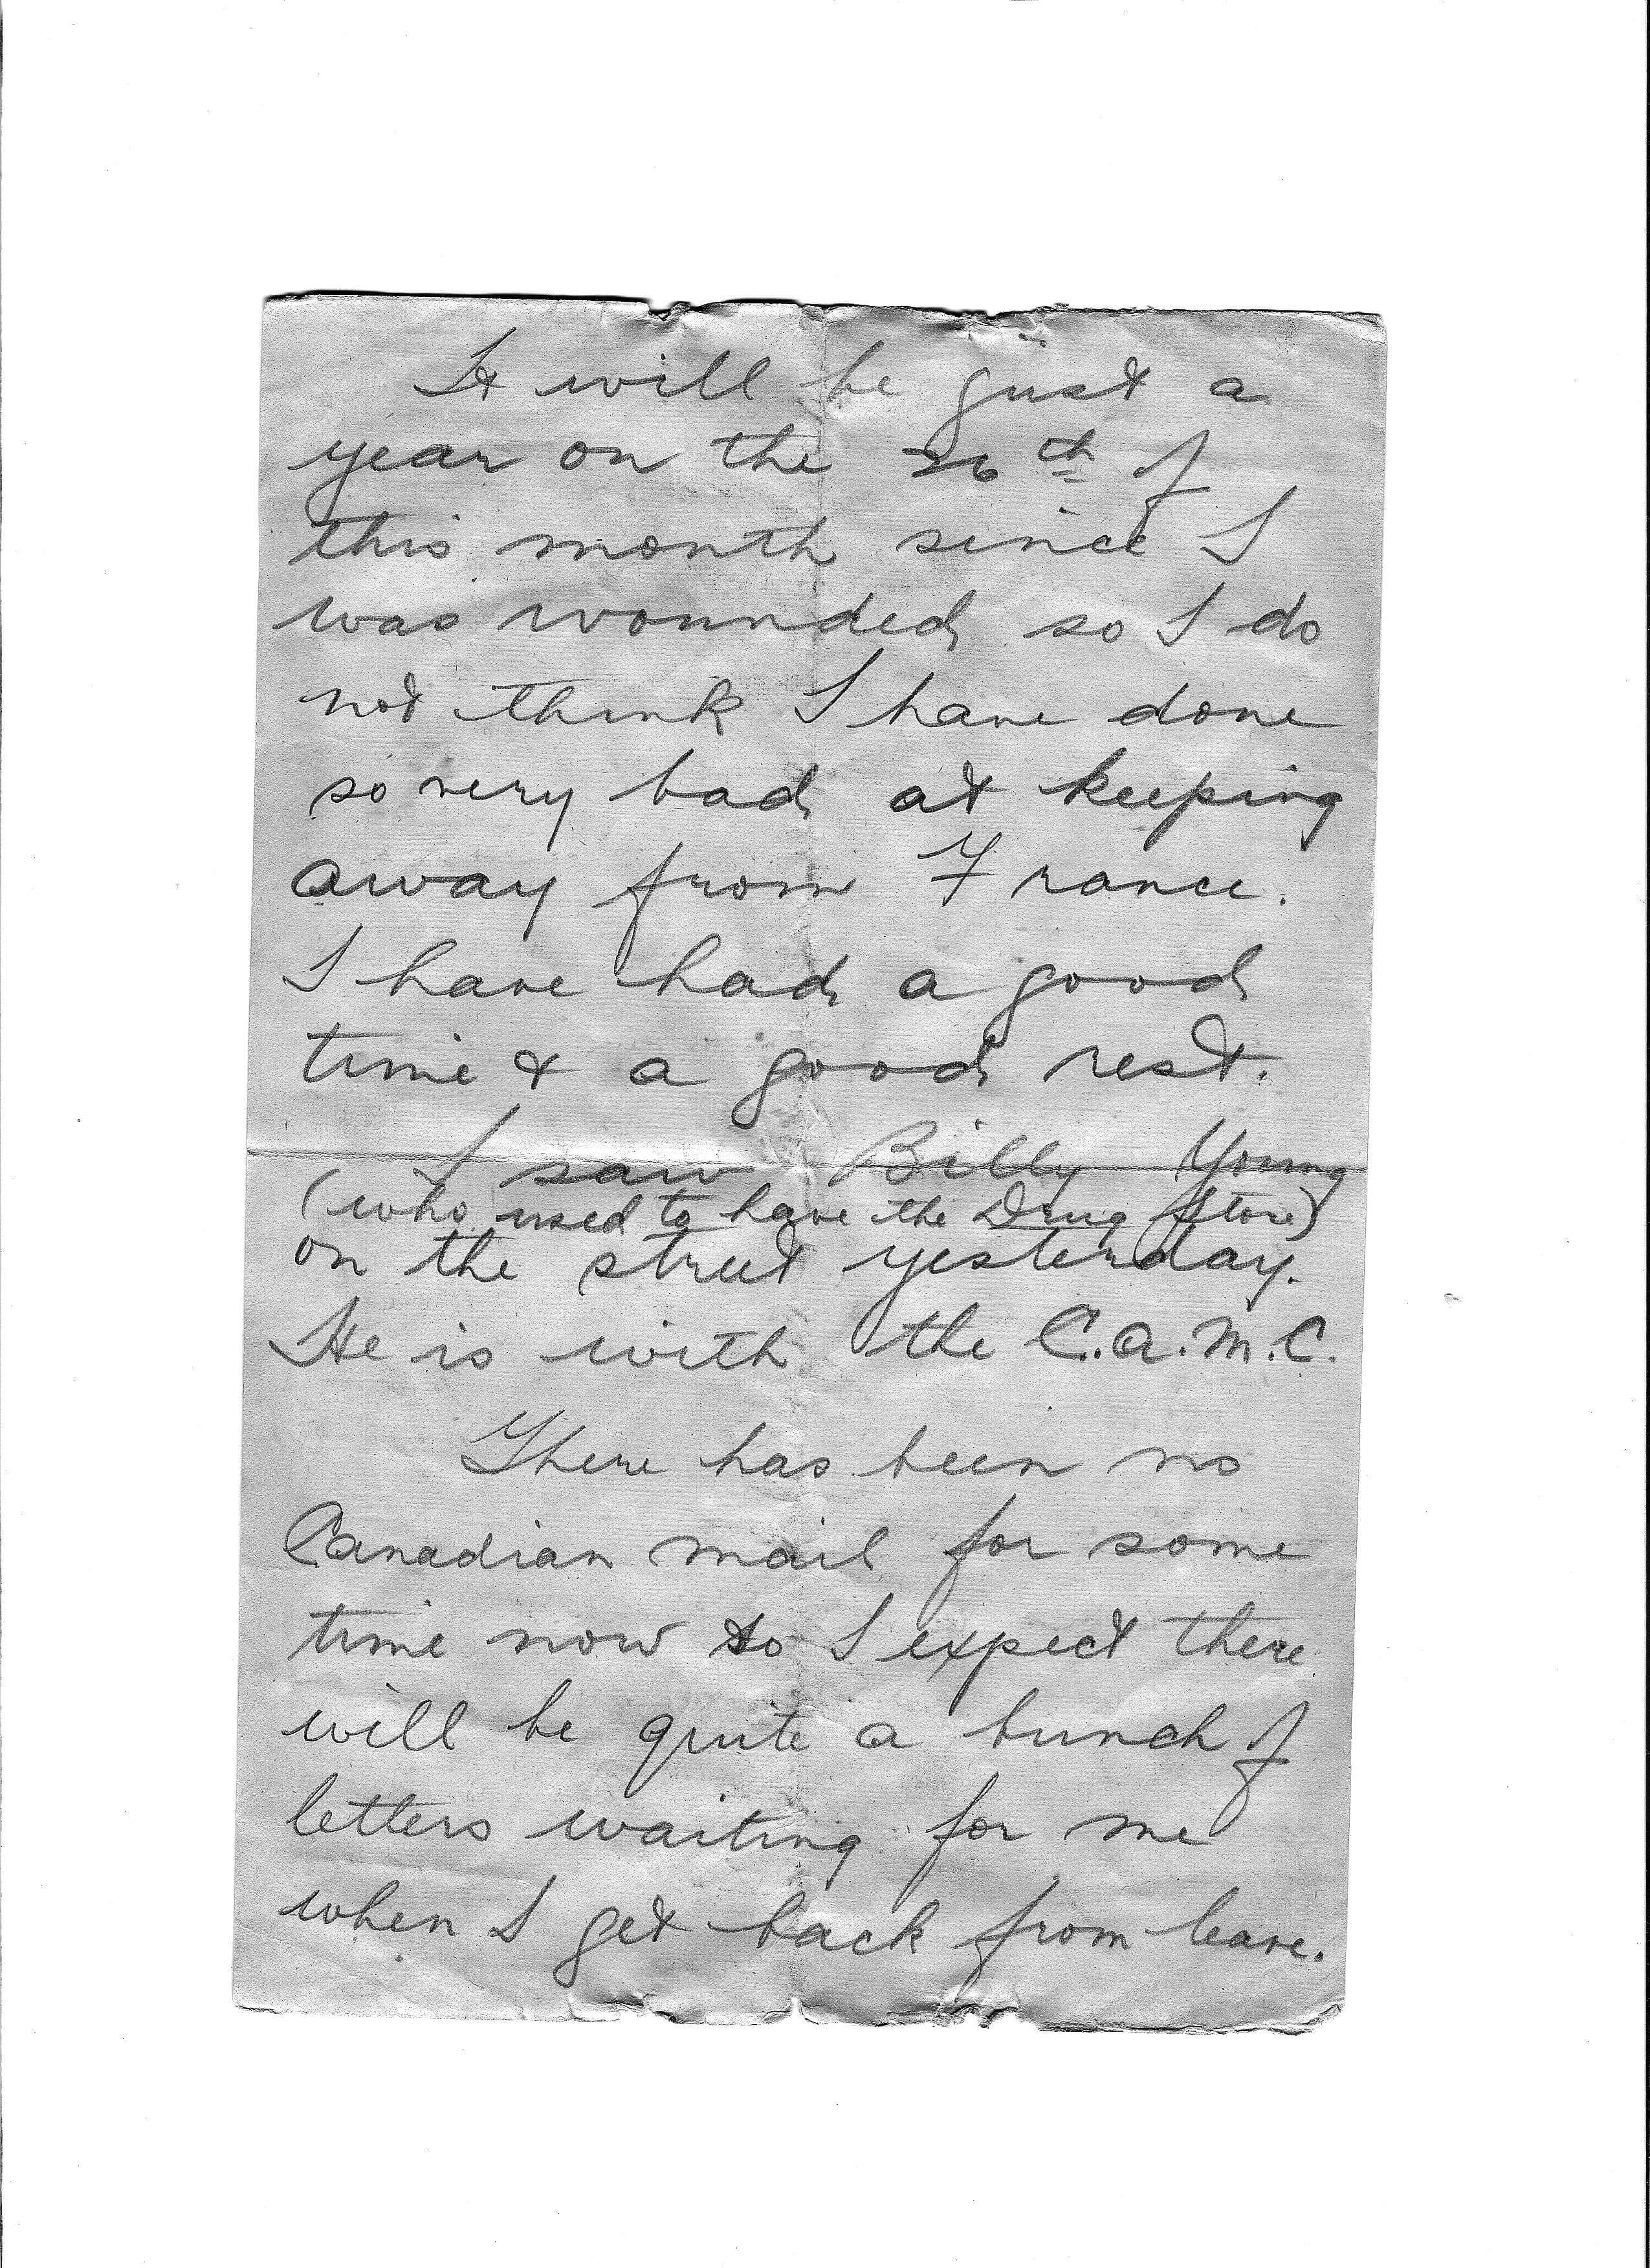 It will be just a
year on the 26th of
this month since I
was wounded so I do
not think I have done
so very bad at keeping
away from France.
I have had a good
time & a good rest.
I saw Billy Young
(who used to have the Drug Store)
on the street yesterday.
He is with the C.A.M.C.
There has been no
Canadian mail for some
time now so I expect there
will be quite a bunch of
letters waiting for me
when I get back from leave.